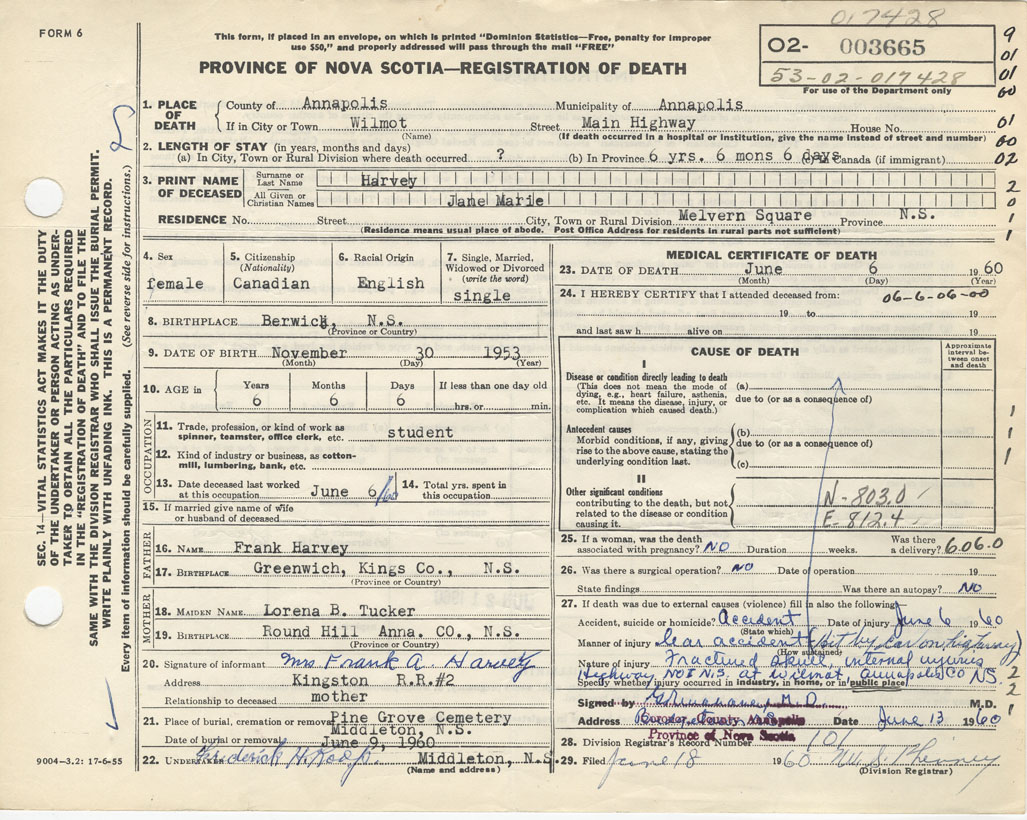 017428
FORM 6
This form, if placed in an envelope, on which is printed "Dominion Statistics—Free, penalty for improper
use $50," and properly addressed will pass through the mail "FREE"
02- 003665
53-02-017428
For use of the Department only
PROVINCE OF NOVA SCOTIA—REGISTRATION OF DEATH
9
01
01
60
01
60
02
2
0
1
1. PLACE OF DEATH { County of Annapolis Municipality of Annapolis
If in City or Town Wilmot Street Main Highway House No.
(Name) (If death occurred in a hospital or institution, give the name instead of street and number)
2. LENGTH OF STAY (in years, months and days)
(a) In City, Town or Rural Division where death occurred ? (b) In Province 6 yrs. 6 mons 6 days (c) In Canada (if immigrant)
3. PRINT NAME OF DECEASED Surname or Last Name Harvey
All Given or Christian Names Jane Marie
RESIDENCE No. Street City, Town or Rural Division Melvern Square Province N.S.
(Residence means usual place of abode. Post Office Address for residents in rural parts not sufficient)
4. Sex female
5. Citizenship (Nationality) Canadian
6. Racial Origin English
7. Single, Married, Widowed or Divorced (write the word) single
8. BIRTHPLACE Berwick, N.S.
(Province or Country)
9. DATE OF BIRTH November 30 1953
(Month) (Day) (Year)
10. AGE in Years 6 Months 6 Days 6 If less than one day old hrs. or min.
OCCUPATION
11. Trade, profession, or kind of work as spinner, teamster, office clerk, etc. student
12. Kind of industry or business, as cotton-mill, lumbering, bank, etc.
13. Date deceased last worked at this occupation June 6/60 14. Total yrs. spent in this occupation
15. If married give name of wife or husband of deceased
FATHER
16. NAME Frank Harvey
17. BIRTHPLACE Greenwich, Kings Co., N.S.
(Province or Country)
MOTHER
18. MAIDEN NAME Lorena B. Tucker
19. BIRTHPLACE Round Hill Anna. CO., N.S.
(Province or Country)
20. Signature of informant Mrs. Frank A. Harvey
Address Kingston R.R.#2
Relationship to deceased mother
21. Place of burial, cremation or removal Pine Grove Cemetery
Middleton, N.S.
Date of burial or removal June 9, 1960
22. UNDERTAKER Frederick H. Middleton, N.S.
(Name and address)
9004—3.2: 17-6-55
MEDICAL CERTIFICATE OF DEATH
23. DATE OF DEATH June 6 1960
(Month) (Day) (Year)
24. I HEREBY CERTIFY that I attended deceased from: 06-6-06-00
19 to 19
and last saw h alive on 19
CAUSE OF DEATH
Approximate interval between onset and death
I
Disease or condition directly leading to death (a)
(This does not mean the mode of dying, e.g., heart failure, asthenia, etc. It means the disease, injury, or complication which caused death.)
due to (or as a consequence of)
Antecedent causes (b)
Morbid conditions, if any, giving rise to the above cause, stating the underlying condition last.
due to (or as a consequence of)
(c)
1
1
1
II
Other significant conditions
contributing to the death, but not related to the disease or condition causing it.
N-803.0
E-812.4
25. If a woman, was the death associated with pregnancy? NO Duration weeks. Was there a delivery? 606.0
26. Was there a surgical operation? NO Date of operation 19
State findings Was there an autopsy? NO
27. If death was due to external causes (violence) fill in also the following
Accident, suicide or homicide? Accident Date of injury June 6 1960
(State which)
Manner of injury Car accident (hit by car on highway)
(How sustained)
Nature of injury Fractured skull, internal injuries
Highway No 1 N.S. at Wilmot, Annapolis CO NS.
Specify whether injury occurred in industry, in home, or in public place
Signed by M.D. M.D.
Address Date June 13 1960
Coroner, County Annapolis
Province of Nova Scotia
2
2
1
28. Division Registrar's Record Number 101
29. Filed June 18 1960
(Division Registrar)
SEC. 14—VITAL STATISTICS ACT MAKES IT THE DUTY
OF THE UNDERTAKER OR PERSON ACTING AS UNDER-
TAKER TO OBTAIN ALL THE PARTICULARS REQUIRED
IN THE "REGISTRATION OF DEATH" AND TO FILE THE
SAME WITH THE DIVISION REGISTRAR WHO SHALL ISSUE THE BURIAL PERMIT.
WRITE PLAINLY WITH UNFADING INK. THIS IS A PERMANENT RECORD.
Every item of information should be carefully supplied. (See reverse side for instructions.)